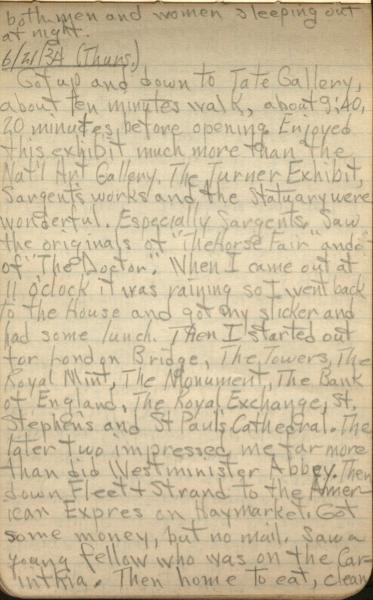 both men and women sleeping out
at night.
6/21/34 (Thurs.)
Got up and down to Tate Gallery,
about ten minutes walk, about 9:40,
20 minutes before opening. Enjoyed
this exhibit much more than the
Nat'l Art Gallery. The Turner Exhibit,
Sargents works and the statuary were
wonderful. Especially Sargents. Saw
the originals of "The Horse Fair" and
of "The Doctor". When I came out at
11 o'clock it was raining so I went back
to the House and got my slicker and
had some lunch. Then I started out
for London Bridge, The Towers, The
Royal Mint, The Monument, The Bank
of England, The Royal Exchange, St.
Stephens and St Pauls Cathedral. The
later two impressed me far more
than did Westminister Abbey. Then
down Fleet & Strand to the Amer-
ican Expres on Haymarket. Got
some money, but no mail. Saw a
young fellow who was on the Car-
inthia. Then home to eat, clean